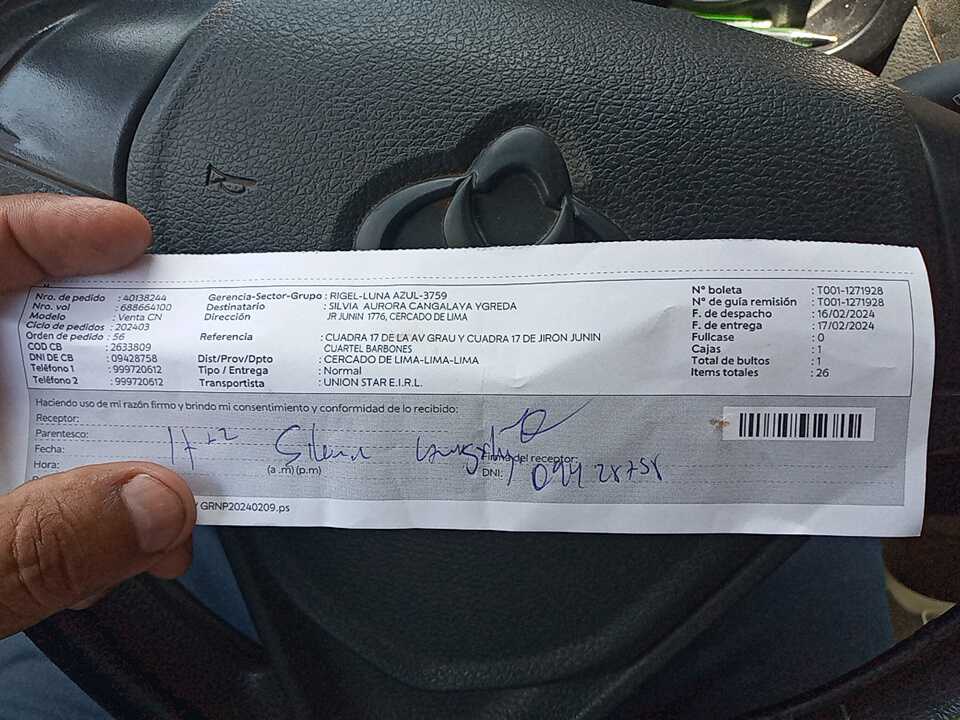 Nro. de pedido : 40138244
Nro. vol : 688664100
Modelo : Venta CN
Ciclo de pedidos : 202403
Orden de pedido : 56
COD CB : 2633809
DNI DE CB : 09428758
Teléfono 1 : 999720612
Teléfono 2 : 999720612
Gerencia-Sector-Grupo : RIGEL-LUNA AZUL-3759
Destinatario : SILVIA AURORA CANGALAYA YGREDA
Dirección JR JUNIN 1776, CERCADO DE LIMA
Referencia : CUADRA 17 DE LA AV GRAU Y CUADRA 17 DE JIRON JUNIN
CUARTEL BARBONES
Dist/Prov/Dpto : CERCADO DE LIMA-LIMA-LIMA
Tipo / Entrega : Normal
Transportista : UNION STAR E.I.R.L.
N° boleta : T001-1271928
N° de guía remisión : T001-1271928
F. de despacho : 16/02/2024
F. de entrega : 17/02/2024
Fullcase : 0
Cajas : 1
Total de bultos : 1
Items totales : 26
Haciendo uso de mi razón firmo y brindo mi consentimiento y conformidad de lo recibido:
Receptor:
Parentesco:
Fecha:
Hora:
(a .m) (p.m)
Firma del receptor:
DNI: 09428758
GRNP20240209.ps